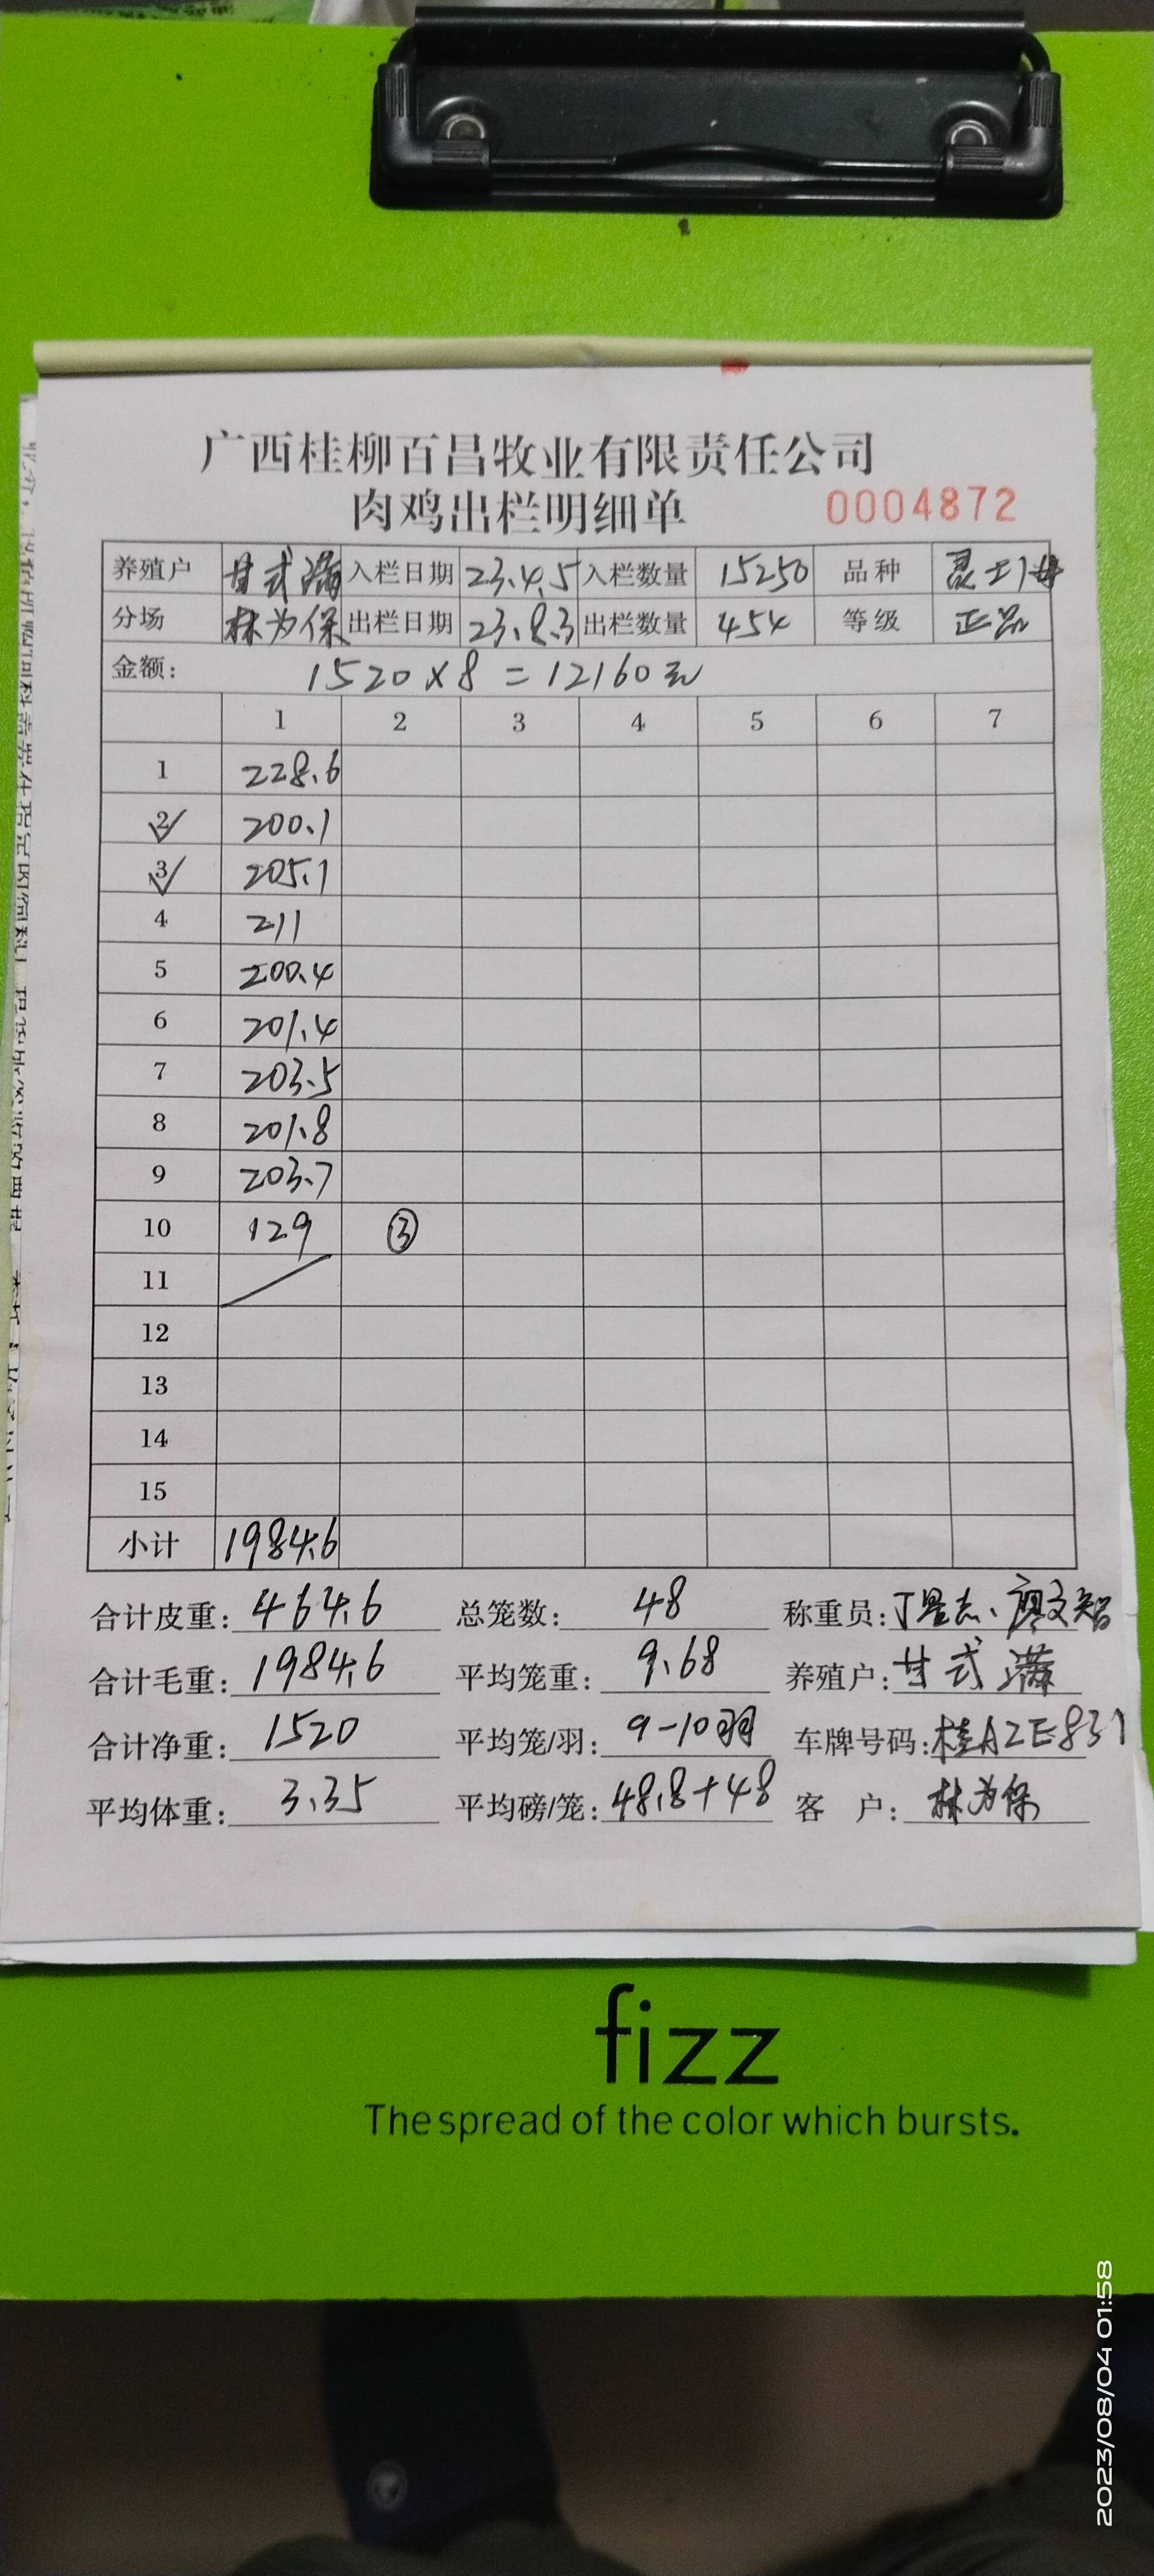 广西桂柳百昌牧业有限责任公司
肉鸡出栏明细单 0004872
养殖户 甘式满 入栏日期 23.4.5 入栏数量 15250 品种
分场 林为保 出栏日期 23.8.3 出栏数量 454 等级 正品
金额: 1520×8=12160元
1 2 3 4 5 6 7
1 228.6
2 200.1
3 205.1
4 211
5 200.4
6 201.4
7 203.5
8 201.8
9 203.7
10 129 ③
11
12
13
14
15
小计 1984.6
合计皮重: 464.6 总笼数: 48 称重员: 廖文智
合计毛重: 1984.6 平均笼重: 9.68 养殖户: 甘式满
合计净重: 1520 平均笼/羽: 9-10羽 车牌号码: 桂AZE831
平均体重: 3.35 平均磅/笼: 48.8+48 客 户: 林为保
fizz
The spread of the color which bursts.
2023/08/04 01:58